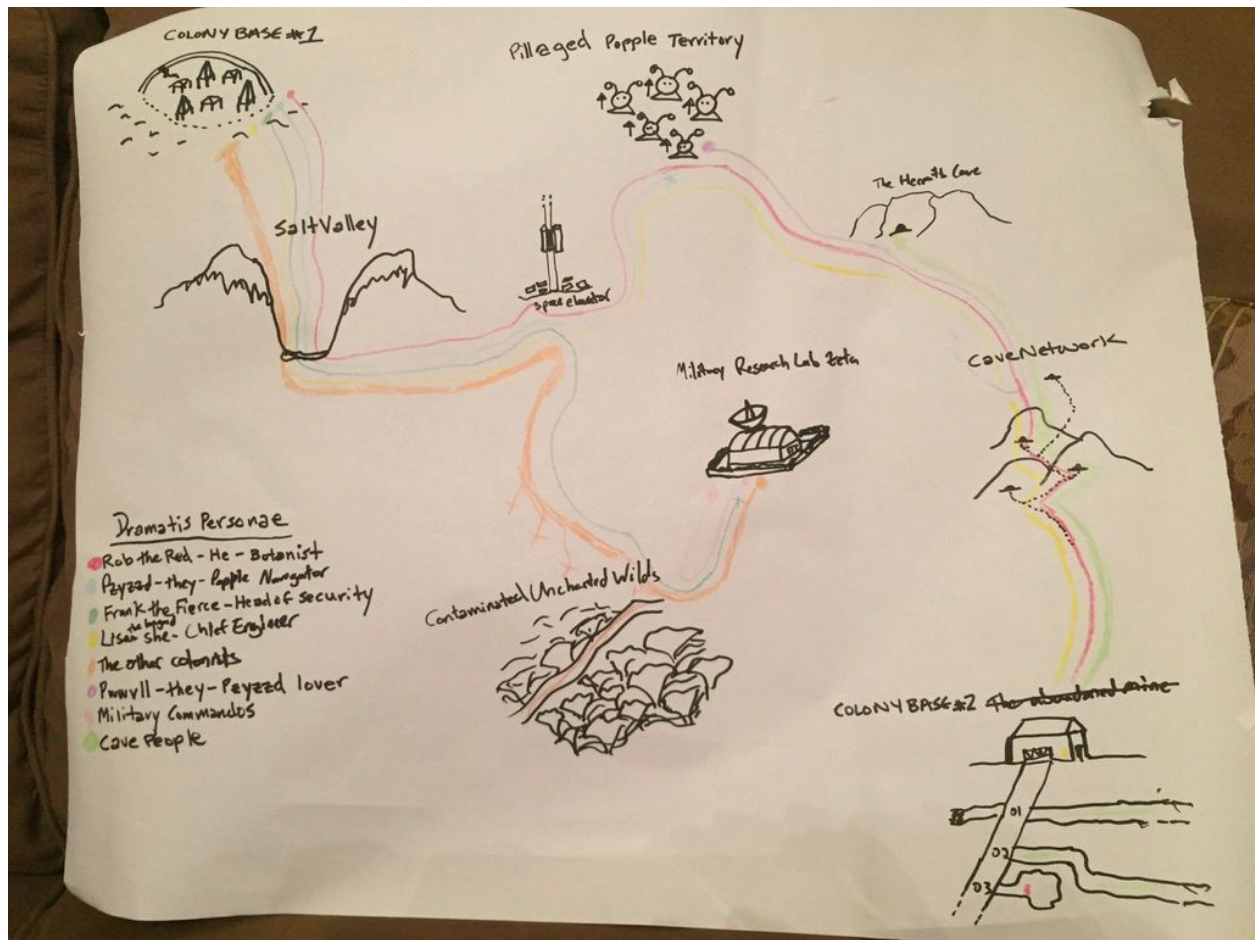 COLONY BASE #1
Pillaged Popple Territory
The Hermit's Cave
Salt Valley
space elevator
Cave Network
Military Research Lab Zeta
Dramatis Personae
Rob the Red - He - Botanist
Pzyzzd - they - Popple Navigator
Frank the Fierce - Head of security
the beyond
Lisa she - Chief Engineer
The other colonists
Pwwvll - they - Pzyzzd lover
Military Commandos
Cave People
Contaminated Uncharted Wilds
COLONY BASE #2 The abandoned mine
01
02
03